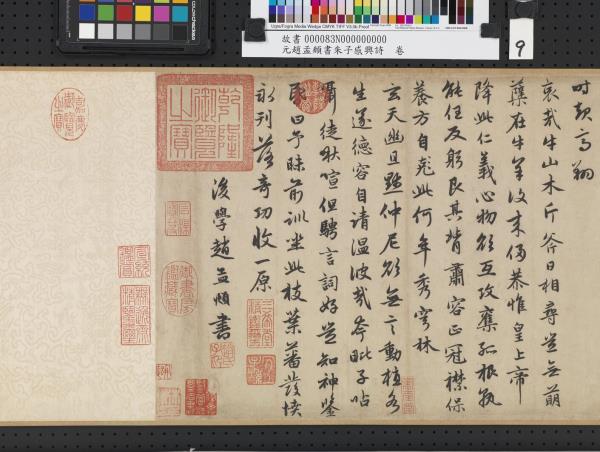 Ugra/Fogra Media Wedge CMYK TIFF V3.0b Proof
故書 000083N000000000
元趙孟頫書朱子感興詩 卷
9
時起高翔
哀哉牛山木斤斧日相尋豈無萌
蘖在牛羊復來侵恭惟皇上帝
降此仁義心物欲互攻奪孤根孰
能任反躬艮其背肅容正冠襟保
養方自茲此何年秀穹林
玄天幽且默仲尼欲無言動植各
生遂德容自清溫彼哉夸毗子呫
囁徒啾喧但騁言詞好豈知神鑒
昬曰予昧前訓坐此枝葉蕃發憤
永刊落奇功收一原
後學趙孟頫書
乾隆御覽之寶
嘉慶御覽之寶
三希堂精鑑璽
宜子孫